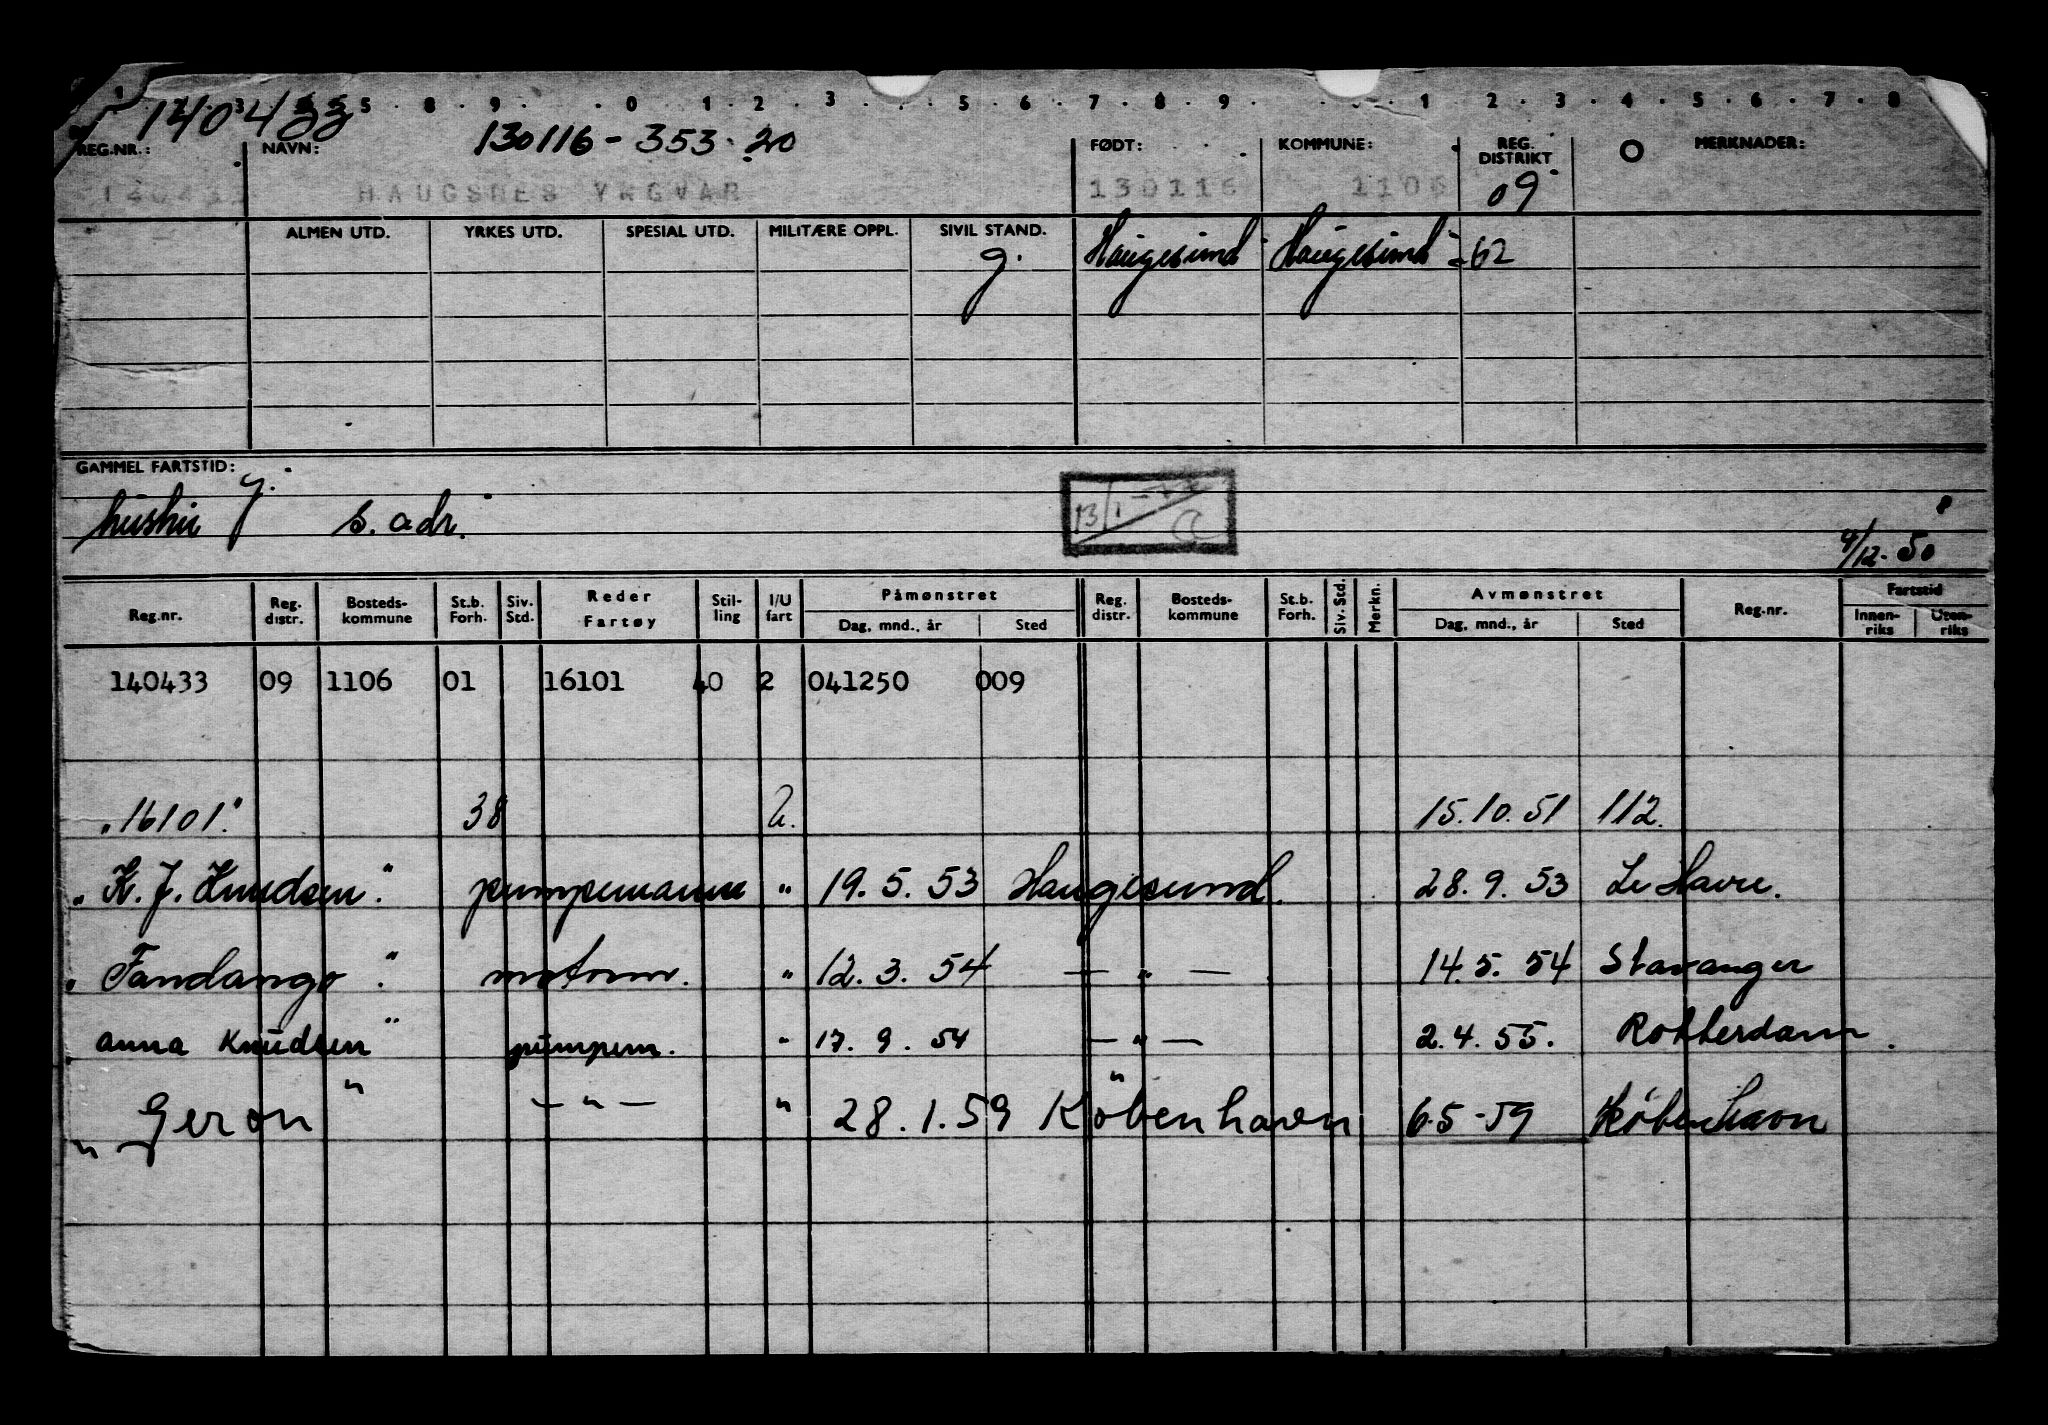 140433
130116-353.20
REG.NR.: NAVN: FØDT: KOMMUNE: REG. DISTRIKT MERKNADER:
HAUGSNES YNGVAR 130116 1106 09
ALMEN UTD. YRKES UTD. SPESIAL UTD. MILITÆRE OPPL. SIVIL STAND.
g. Haugesund Haugesund -62
GAMMEL FARTSTID:
hustru s. adr.
4/12.50
Reg.nr. Reg. distr. Bosteds-kommune St.b. Forh. Siv. Std. Reder Fartøy Stil-ling I/U fart Påmønstret Dag, mnd., år Sted Reg. distr. Bosteds-kommune St.b. Forh. Siv. Std. Merkn. Avmønstret Dag, mnd., år Sted Reg.nr. Fartstid Innen-riks Uten-riks
140433 09 1106 01 16101 40 2 041250 009
"16101" 38 U. 15.10.51 112.
"K. J. Knudsen" pumpemann " 19.5.53 Haugesund. 28.9.53 Le Havre.
"Fandango" motorm. " 12.3.54 — " — 14.5.54 Stavanger
anna Knudsen" pumpem. " 17.9.54 — " — 2.4.55. Rotterdam.
"Geron" — " — " 28.1.59 København 6.5-59 København